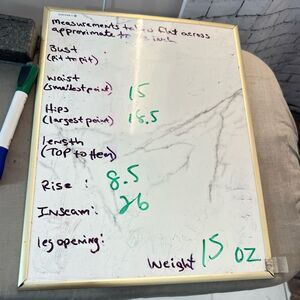 measurements taken flat across
approximate to the inch
Bust :
(pit to pit)
waist 15
(smallest point)
Hips 18.5
(largest point)
length
(TOP to Hem)
Rise : 8.5
Inseam: 26
leg opening:
Weight 15 oz